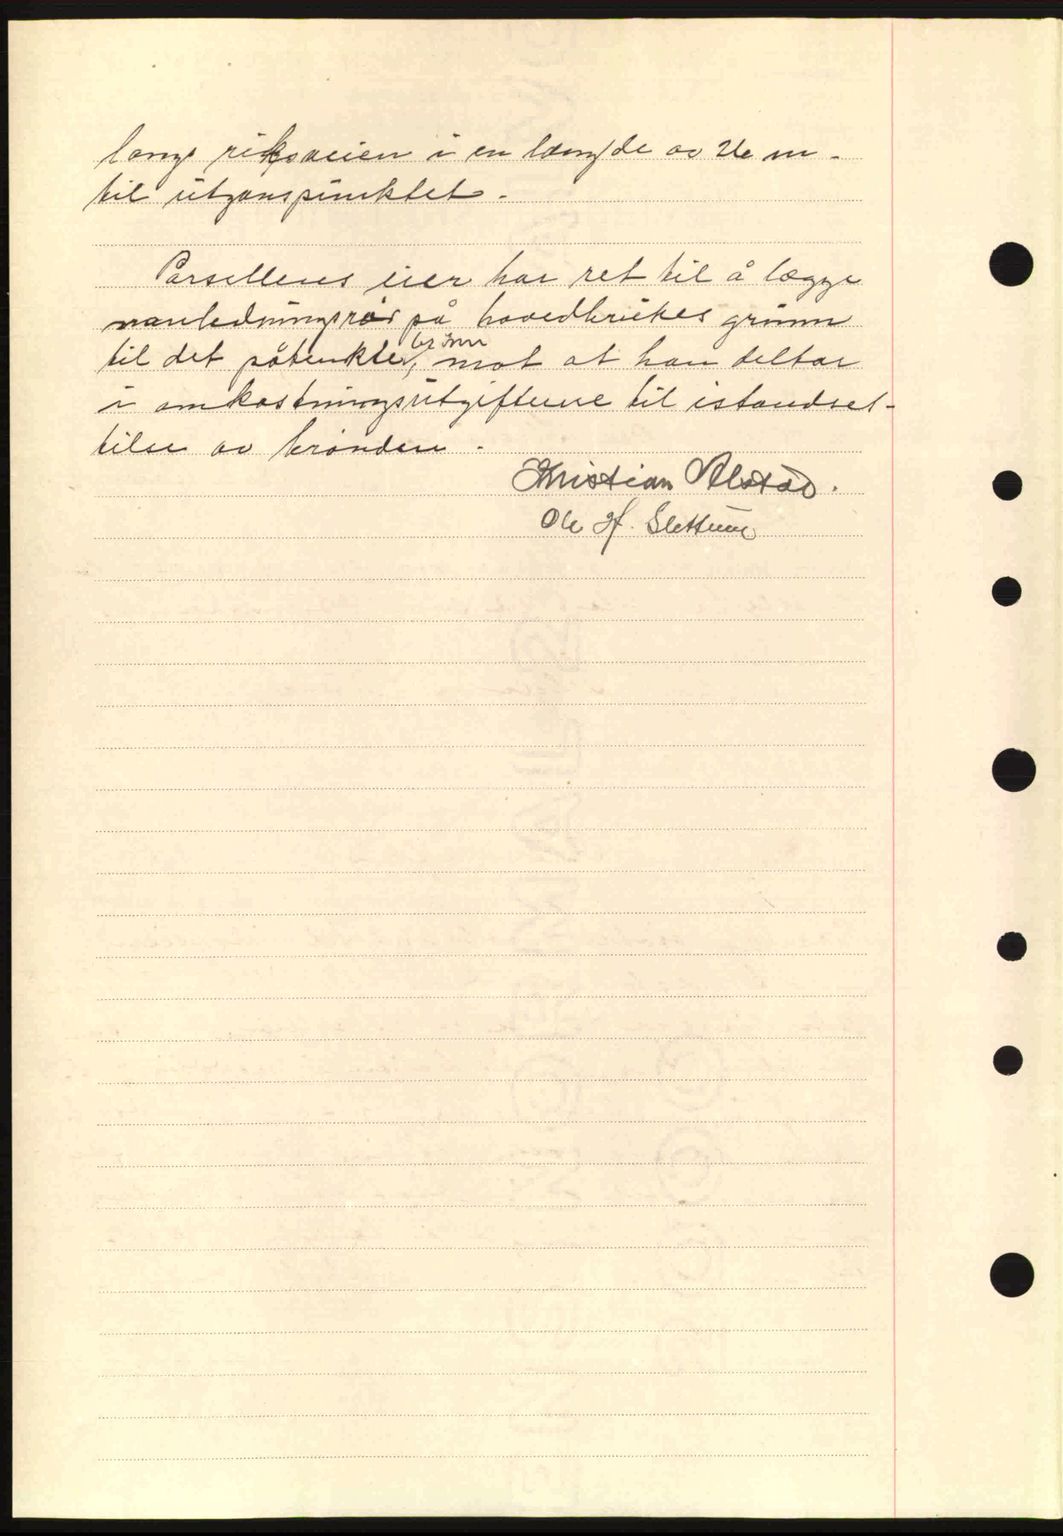 langs riksveien i en længde av 26 m.
til utganspunktet.
Parsellenes eier har ret til å lægge
vanledningsrør på hovedbrukes grunn
til det påtenkte brønn, mot at han deltar
i omkostningsutgifterne til istandset-
telse av brønden.
Kristian Alstad.
Ole H. Slettum